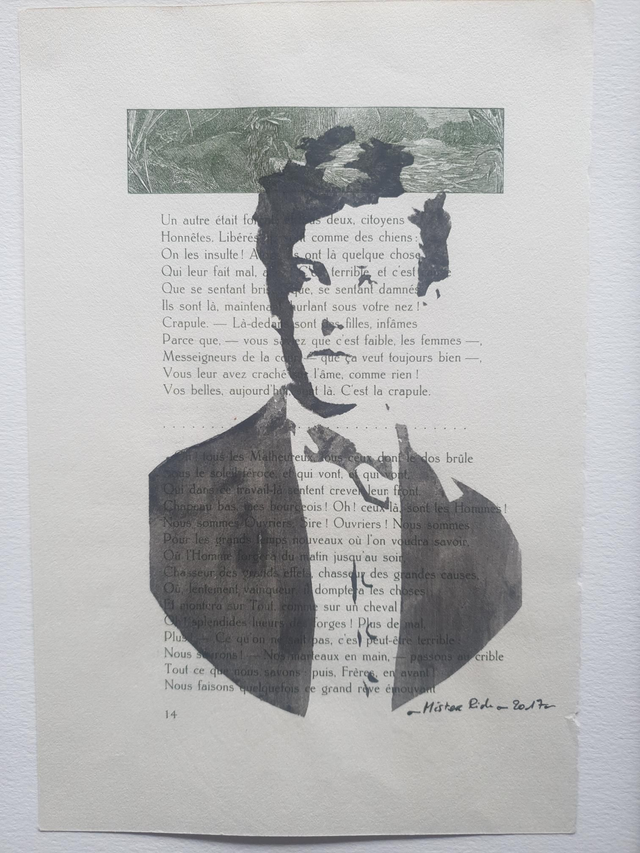 Un autre était deux, citoyens
Honnêtes. Libérés comme des chiens :
On les insulte ! ont là quelque chose
Qui leur fait mal, terrible, et c'est
Que se sentant que, se sentant damnés
Ils sont là, maintenant hurlant sous votre nez !
Crapule. — Là-dedans sont des filles, infâmes
Parce que, — vous savez que c'est faible, les femmes —,
Messeigneurs de la cour, — que ça veut toujours bien —,
Vous leur avez craché sur l'âme, comme rien !
Vos belles, aujourd'hui, sont là. C'est la crapule.
. . . . . . . . . . . . . . . . . . . . . . . . . . . . . . . .
« Oh ! tous les Malheureux, tous ceux dont le dos brûle
Sous le soleil féroce, et qui vont, et qui vont,
Qui dans ce travail-là sentent crever leur front.
Chapeau bas, mes bourgeois ! Oh ! ceux-là, sont les Hommes !
Nous sommes Ouvriers, Sire ! Ouvriers ! Nous sommes
Pour les grands temps nouveaux où l'on voudra savoir,
Où l'Homme forgera du matin jusqu'au soir
Chasseur des grands effets, chasseur des grandes causes,
Où, lentement vainqueur, il domptera les choses
Et montera sur Tout, comme sur un cheval
Oh ! splendides lueurs des forges ! Plus de mal,
Plus ! — Ce qu'on ne sait pas, c'est peut-être terrible :
Nous saurons ! — Nos marteaux en main, — passons au crible
Tout ce que nous savons : puis, Frères, en avant !
Nous faisons quelquefois ce grand rêve émouvant
14
Mister 2017